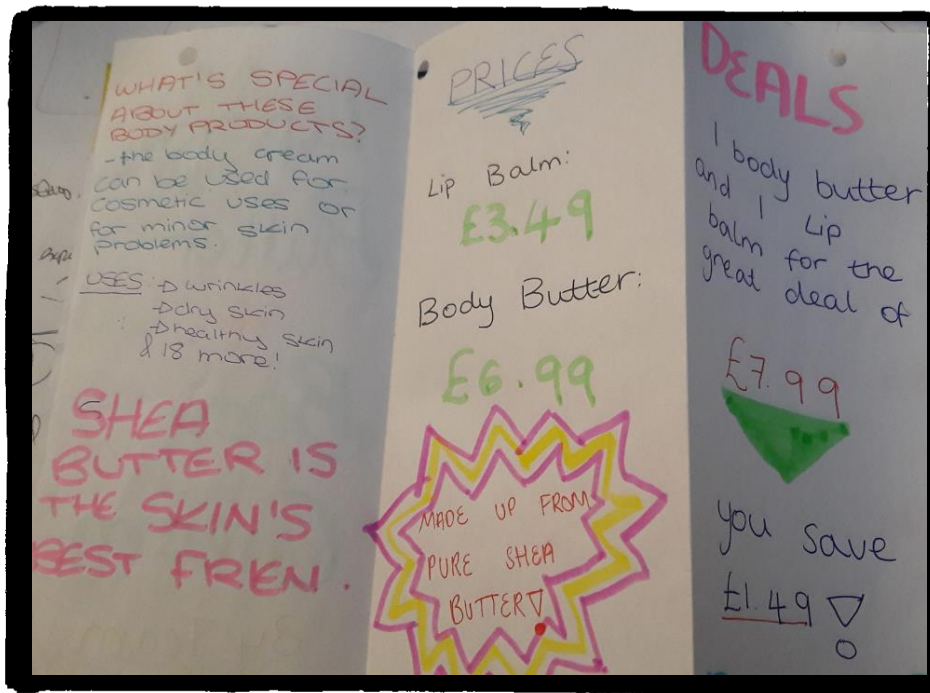 WHAT'S SPECIAL
ABOUT THESE
BODY PRODUCTS?
-the body cream
can be used for
cosmetic uses or
for minor skin
problems.
USES: → wrinkles
→ dry skin
→ healthy skin
& 18 more!
SHEA
BUTTER IS
THE SKIN'S
BEST FRIEN.
PRICES
Lip Balm:
£3.49
Body Butter:
£6.99
MADE UP FROM
PURE SHEA
BUTTER!
DEALS
1 body butter
and 1 Lip
balm for the
great deal of
£7.99
you save
£1.49!